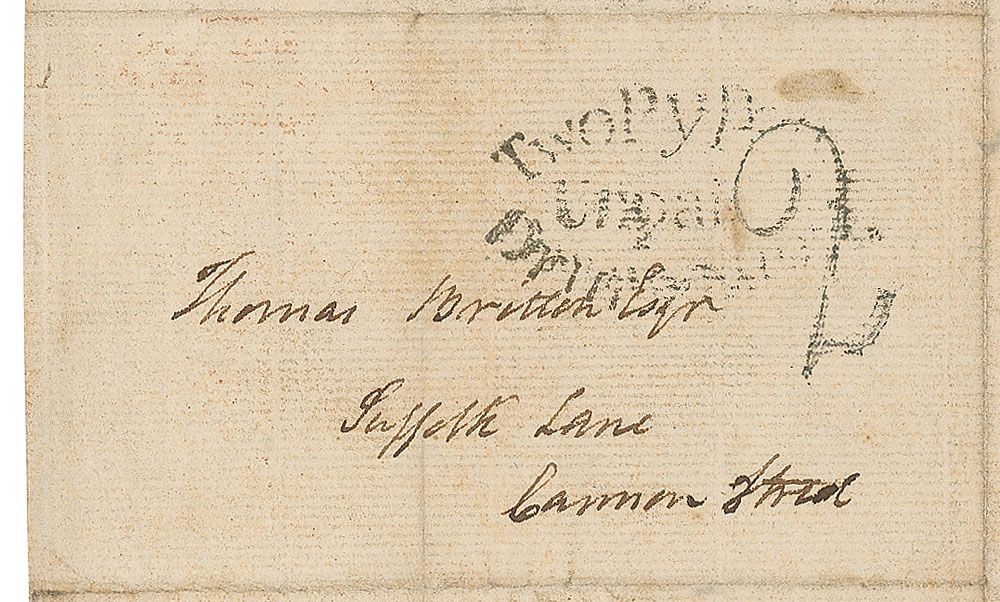 TwoPyP
Unpaid
2
Thomas Britten Esqr
Suffolk Lane
Cannon Street